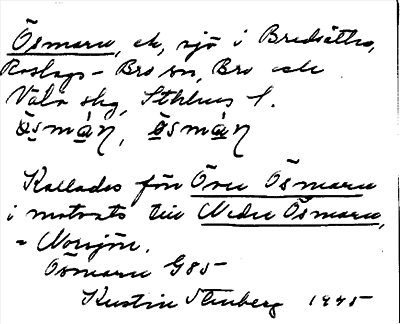 Ösmaren, ek, sjö i Bredsättra,
Roslags-Bro sn, Bro och
Väla skg, Sthlms l.
ö̀smàn, ö̀smàn
Kallades förr Övre Ösmaren
i motsats till Nedre Ösmaren,
= Norrsjön.
Ösmaren G85
Kerstin Stenberg 1945